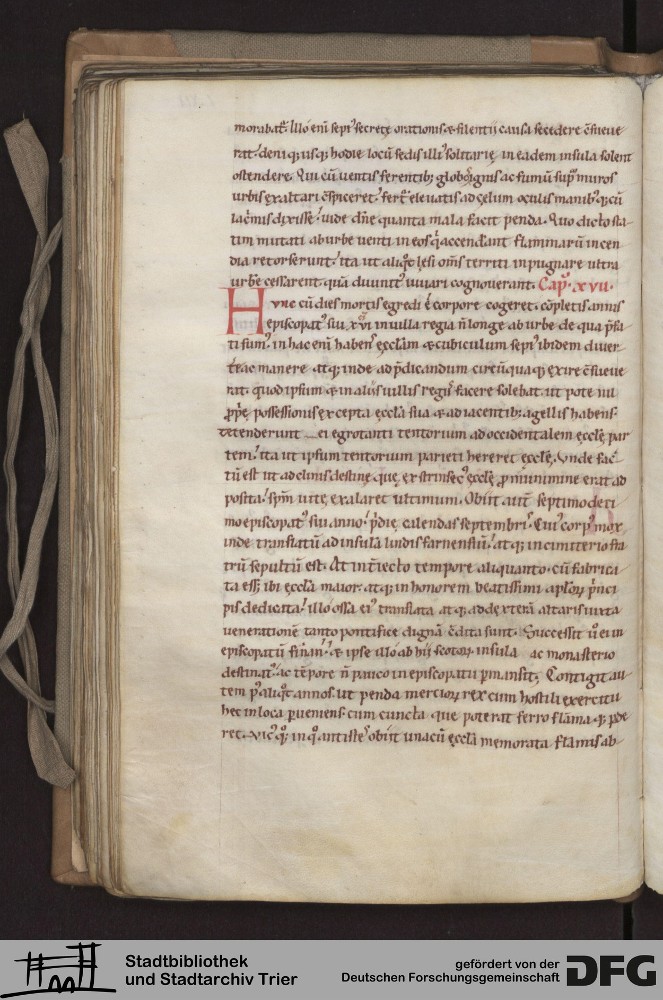 morabat᷒. Illó eni᷒ sepi᷒ secrete orationis & silentii causa secedere c̄sueue
rat. deniq; usq; hodie locū sedis illi᷒ solitarię in eadem insula solent
ostendere. Qui cū uentis ferentib; globos ignis ac fumū sup̄ muros
urbis exaltari c̄spiceret. fert᷒ eleuatis ad cęlum oculis manib᷒q; cū
lacrimis dixisse. uide dn̄e quanta mala facit penda. Quo dicto sta
tim mutati ab urbe uenti in eos q̇ accenderant flammarū incen
dia retorserunt. ita ut aliq̇t lęsi om̄s territi inpugnare ultra
urbē cessarent. quā diuinit᷒ iuuari cognouerant. Cap᷒. xvii.
Hvnc cū dies mortis egredi é corpore cogeret. cōpletis annis
episcopat᷒ sui xvi in uilla regia n̄ longe ab urbe de qua p̄fa
ti sum᷒. in hac eni᷒ habens ęcclām & cubiculum sepi᷒ ibidem diuer
ti ac manere atq; inde ad p̄dicandum circūquaq; exire c̄sueue
rat. quod ipsum & in aliis uillis regiis facere solebat. ut pote nil
ꝓprię possessionis excepta ęcclā sua & adiacentib; agellis habens.
Tetenderunt ei egrotanti tentorium ad occidentalem ęcclę par
tem. ita ut ipsum tentorium parieti hereret ęcclę. Vnde fac
tū est ut adclinis destinę quę extrinsec᷒ ęcclę ꝓ munimine erat ad
posita. spm̄ uitę exalaret ultimum. Obiit aut̄ septimodeci
mo episcopat᷒ sui anno. p̄die calendas septembris. Cui᷒ corp᷒ mox
inde translatū ad insulā lindisfarnensiū. atq; in cimiterio fra
trū sepultū est. At int̄iecto tempore aliquanto. cū fabrica
ta esset ibi ecclā maior. atq; in honorem beatissimi aplorꝫ p̄nci
pis dedicata. illó ossa ei᷒ translata atq; ad dexterā altaris iuxta
uenerationē tanto pontifice dignā c̄dita sunt. Successit ū ei in
episcopatū finan. & ipse illó ab hii scotorꝫ insula ac monasterio
destinat᷒. ac tēpore n̄ pauco in episcopatu p̱mansit. Contigit au
tem p᷒ aliq̇t annos. ut penda merciorꝫ rex cum hostili exercitu
hec in loca p̱ueniens. cum cuncta que poterat ferro flāmaq; p̱de
ret. vic᷒ q̇q; in q̇ antistes obiit una cū ęcclā memorata flāmis ab
Stadtbibliothek
und Stadtarchiv Trier
gefördert von der
Deutschen Forschungsgemeinschaft
DFG